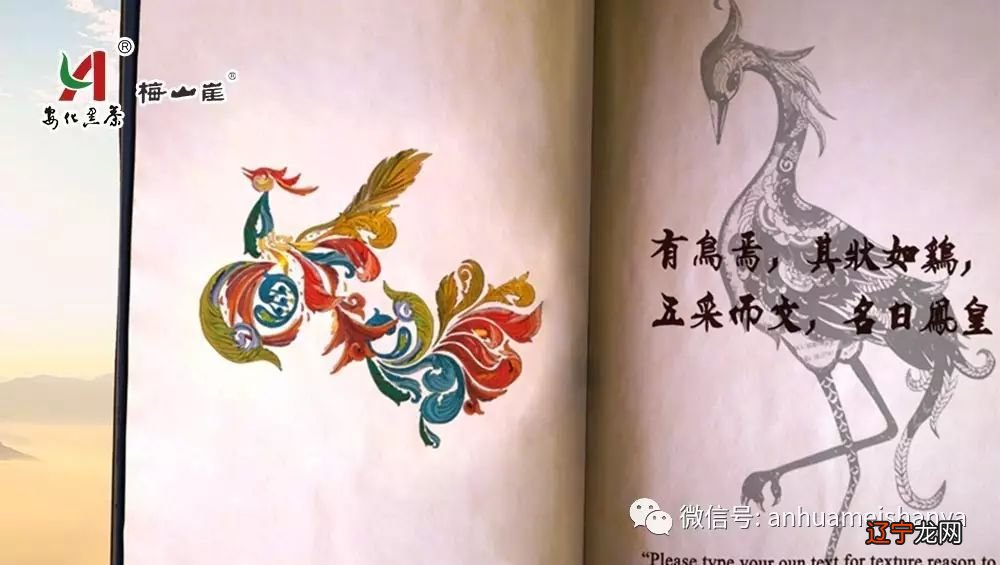 ®
安化黑茶
梅山崖®
有鳥焉，其狀如鷄，
五采而文，名曰鳳皇
微信号: anhuameishanya
辽宁龙网
“Please type your oun text for texture reason to